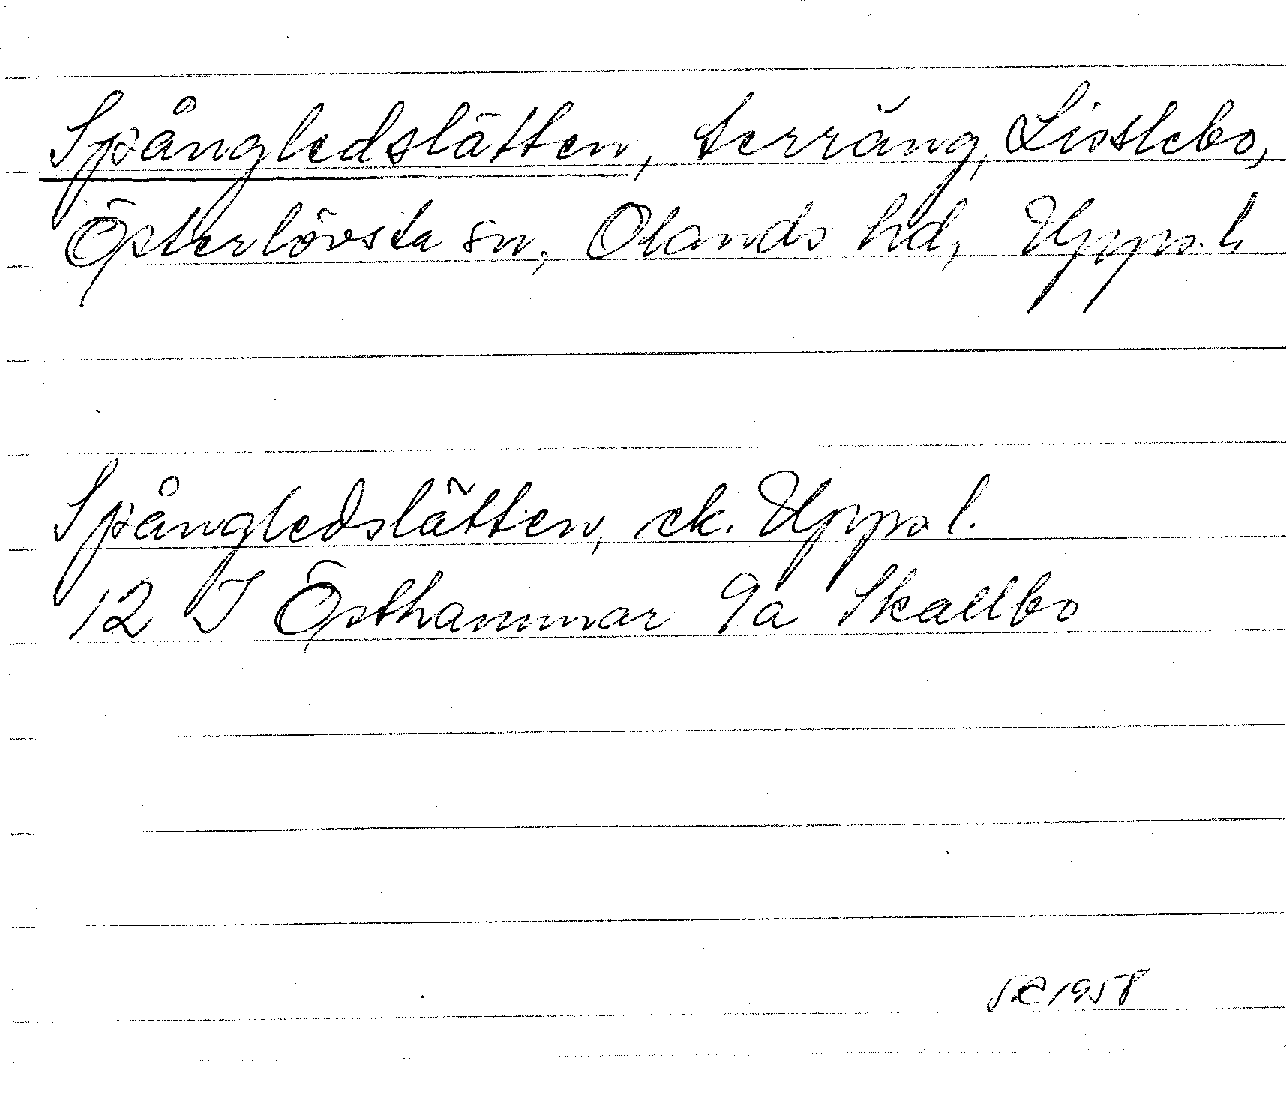 Spångledslätten, terräng, Lisslebo,
Österlövsta sn, Olands hd, Uppl.
Spångledslätten, ek. Uppl.
12 I Östhammar 9a Skallbo
1958